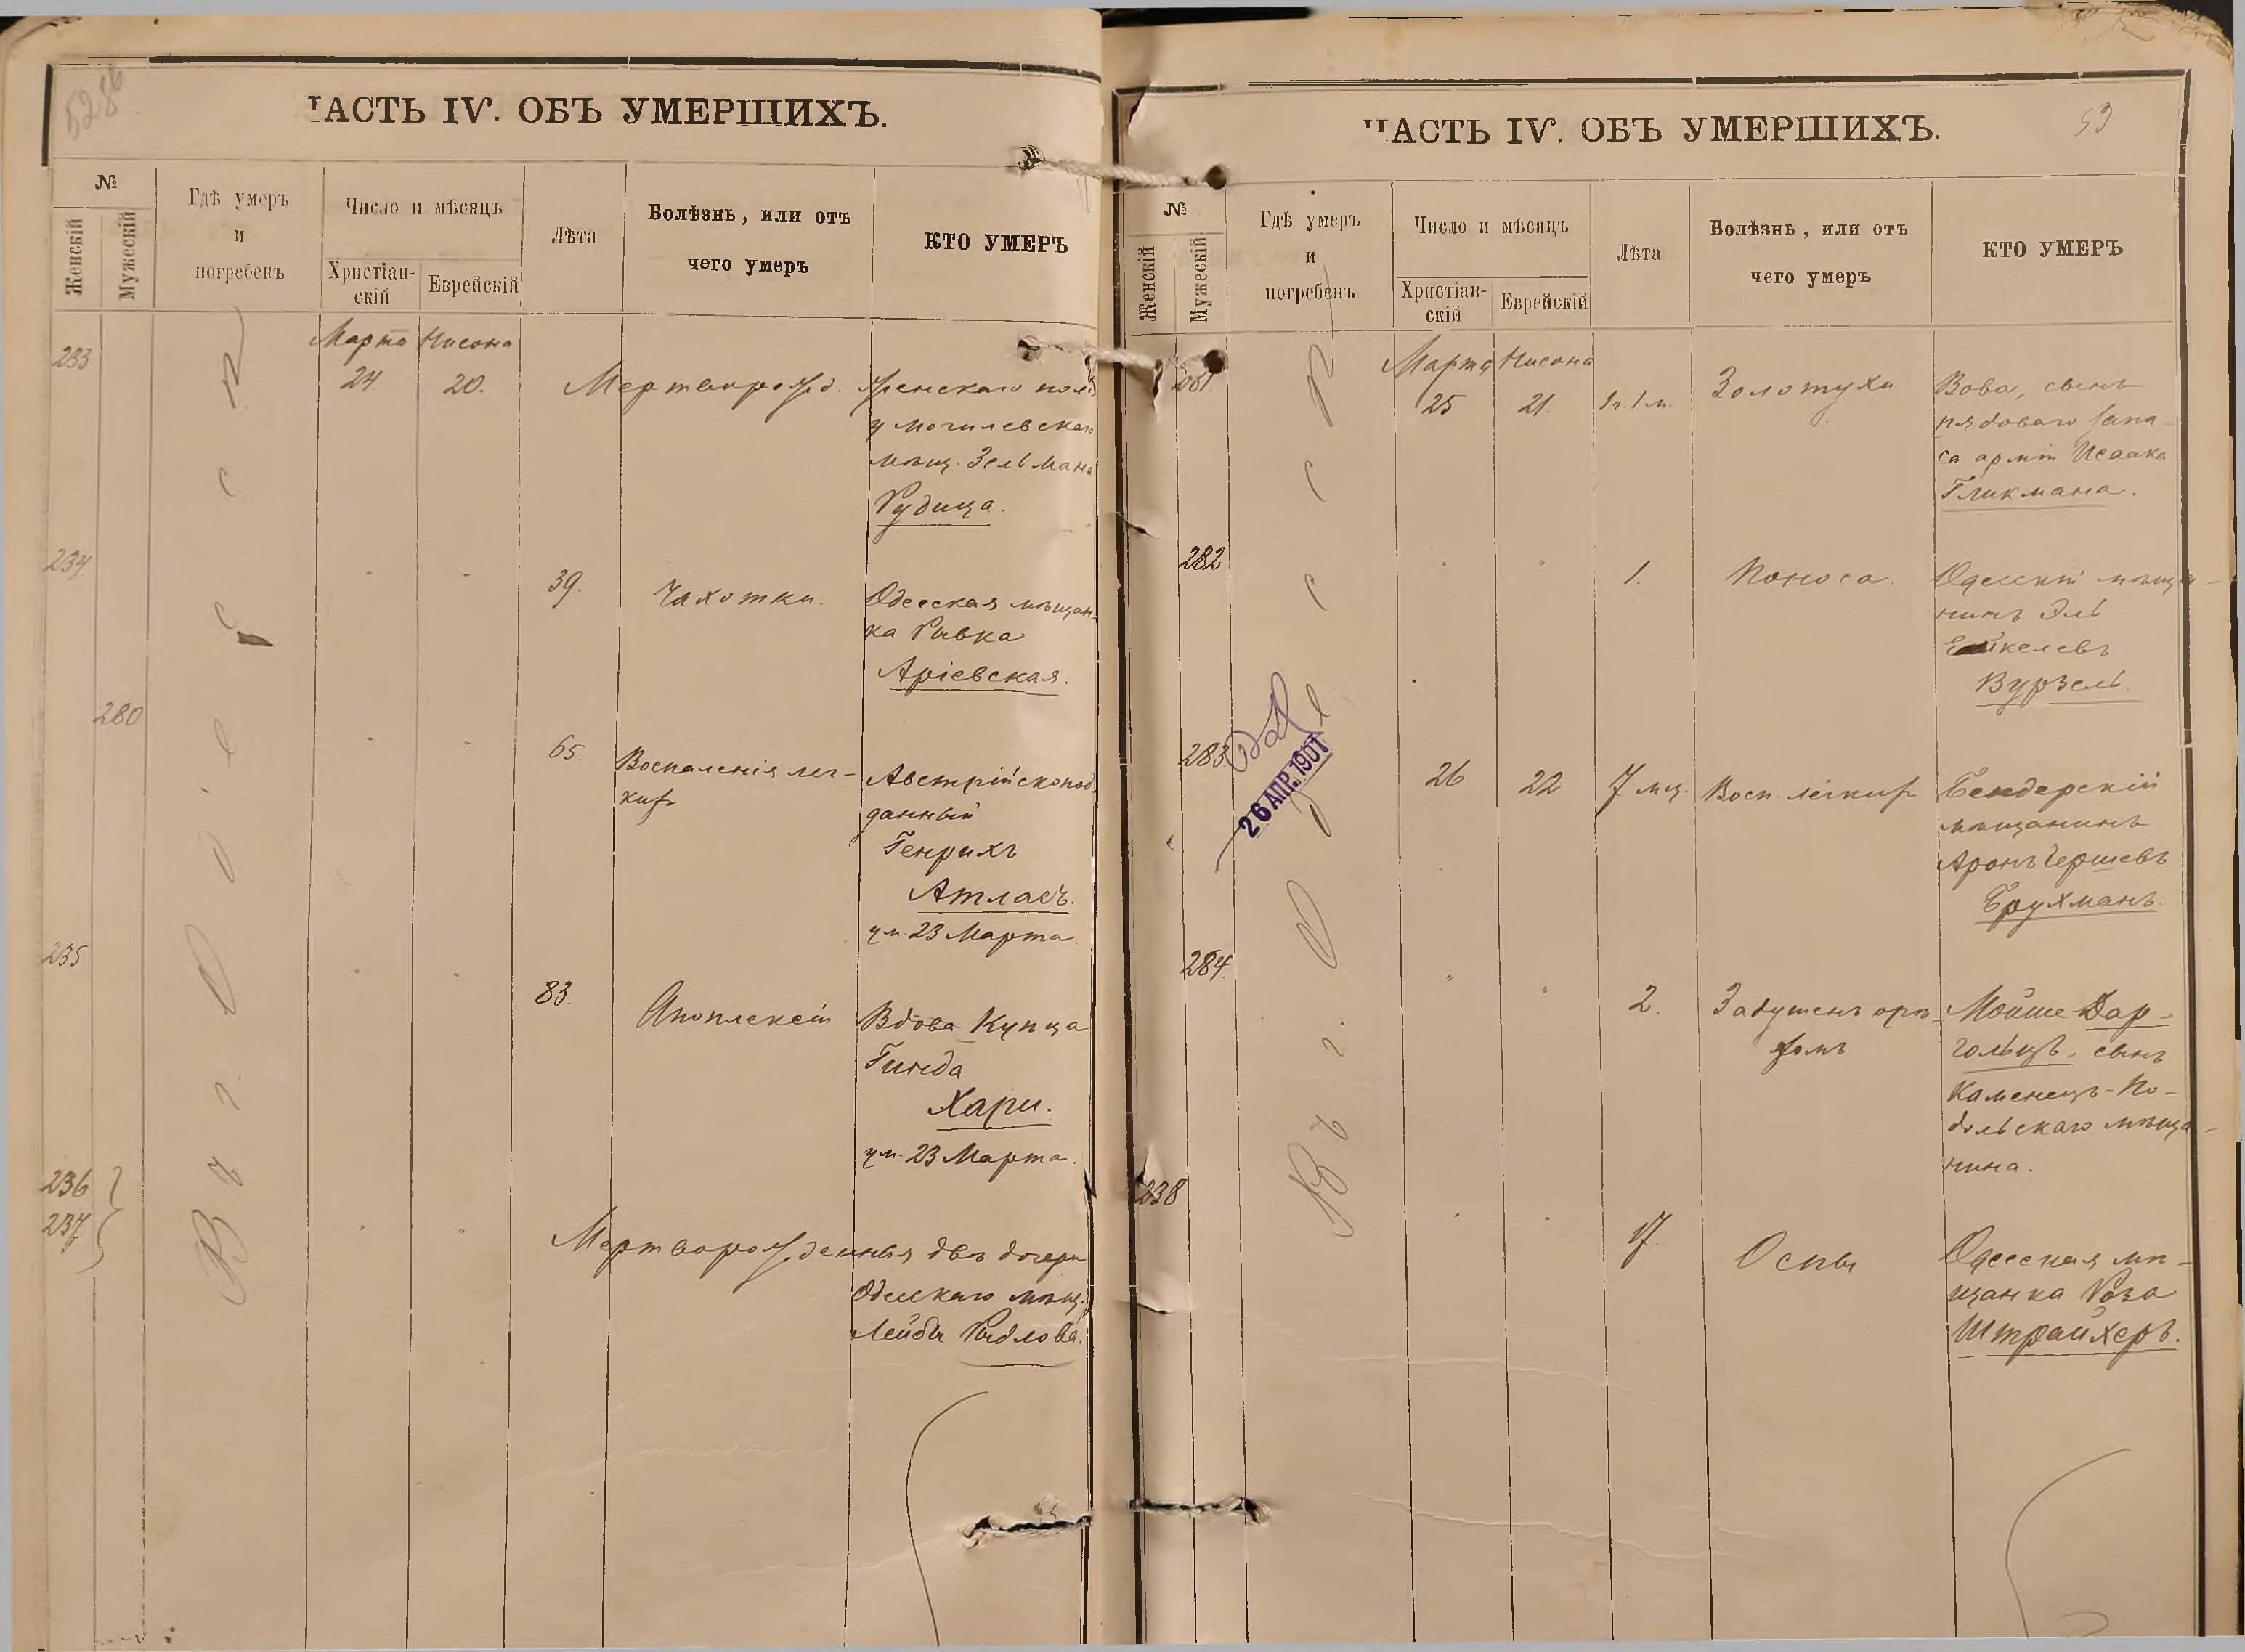 528б
ЧАСТЬ IV. ОБЪ УМЕРШИХЪ.
№
Женскій
Мужескій
Гдѣ умеръ
и
погребенъ
Число и мѣсяцъ
Христіан-
скій
Еврейскій
Лѣта
Болѣзнь, или отъ
чего умеръ
КТО УМЕРЪ
Въ г. Одессѣ
Марта Нисона
233
24. 20. Мертворожд. женскаго пола
у могилевскаго
мѣщ. Зельмана
Рудица.
234
" " 39. Чахотки. Одесская мѣщан-
ка Ривка
Аріевская.
280
" " 65. Воспаленія лег-
кихъ
Австрійскопод
данный
Генрихъ
Атласъ.
ум. 23 Марта.
235
" " 83. Апоплексіи Вдова Купца
Гинда
Хари.
ум. 23 Марта.
236
237
" " Мертворожденныя двѣ дочери
Одесскаго мѣщ.
Лейбы Рыдлова.
ЧАСТЬ IV. ОБЪ УМЕРШИХЪ.
53
№
Женскій
Мужескій
Гдѣ умеръ
и
погребенъ
Число и мѣсяцъ
Христіан-
скій
Еврейскій
Лѣта
Болѣзнь, или отъ
чего умеръ
КТО УМЕРЪ
Въ г. Одессѣ
Марта Нисона
281.
25 21. 1 г. 1 м. Золотухи Вова, сынъ
рядоваго запа-
са арміи Исаака
Гликмана.
282
" " 1. Поноса. Одесскій мѣща-
нинъ Эль
Вурзель.
283
26 АПР. 1901
26 22 7 мц. Восп. легкихъ Бендерскій
мѣщанинъ
Аронъ Гершевъ
Брухманъ.
284.
" " 2. Задушенъ орѣ-
хомъ
Мойше Дар-
гольцъ, сынъ
Каменецъ-По-
дольскаго мѣща-
нина.
238
" " 17. Оспы Одесская мѣ-
щанка Роза
Штрайхеръ.